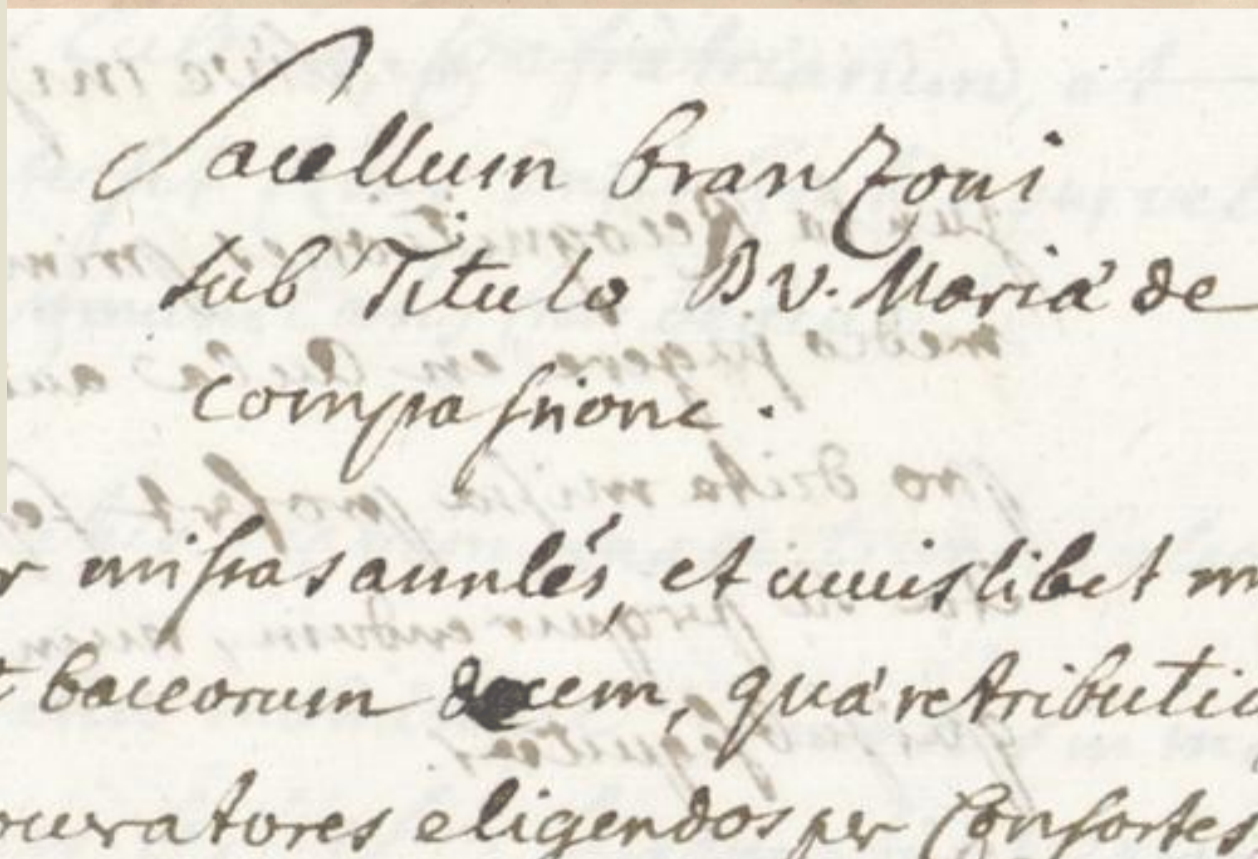 Sacellum Branzoni
sub Titulo B V. Mariá de
compassione.
missas annlés, et cuuislibet
baceorum decem, quá retributio
eligendos per Consortes